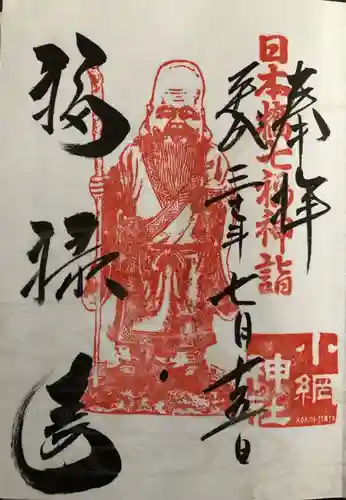 奉拝
日本橋七福神詣
平成三十年七月十五日
福禄寿
小網
神社
KOAMI-JINJA